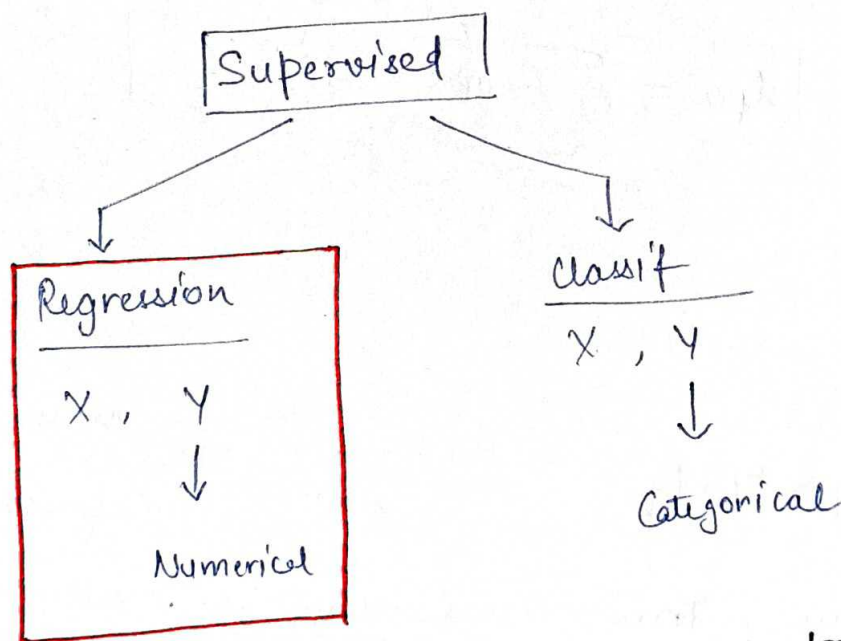 Supervised
Regression
X , Y
Numerical
Classif
X , Y
Categorical